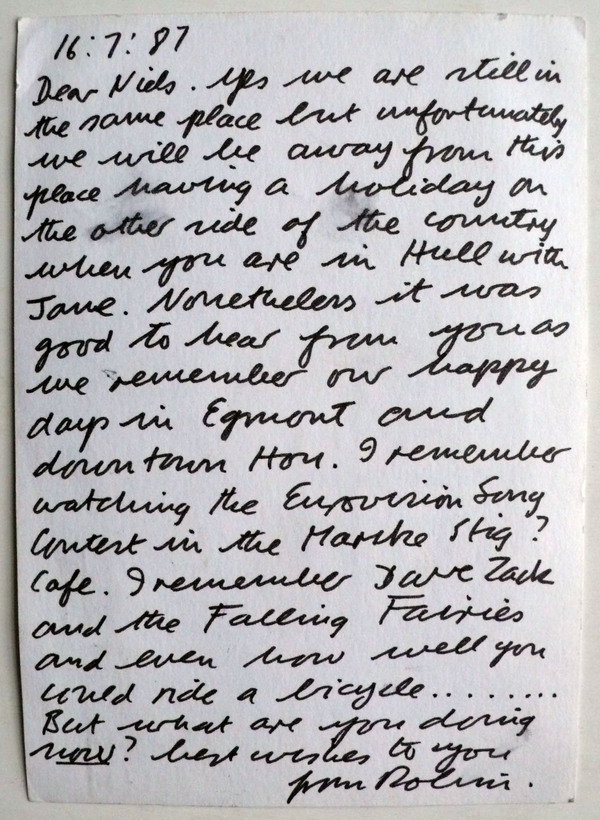 16:7:87
Dear Niels. Yes we are still in
the same place but unfortunately
we will be away from this
place having a holiday on
the other side of the country
when you are in Hull with
Jane. Nonetheless it was
good to hear from you as
we remember our happy
days in Egmont and
downtown Hou. I remember
watching the Eurovision Song
Contest in the Marske Stig?
Cafe. I remember Dave Zack
and the Falling Fairies
and even how well you
could ride a bicycle........
But what are you doing
now? best wishes to you
from Robin.